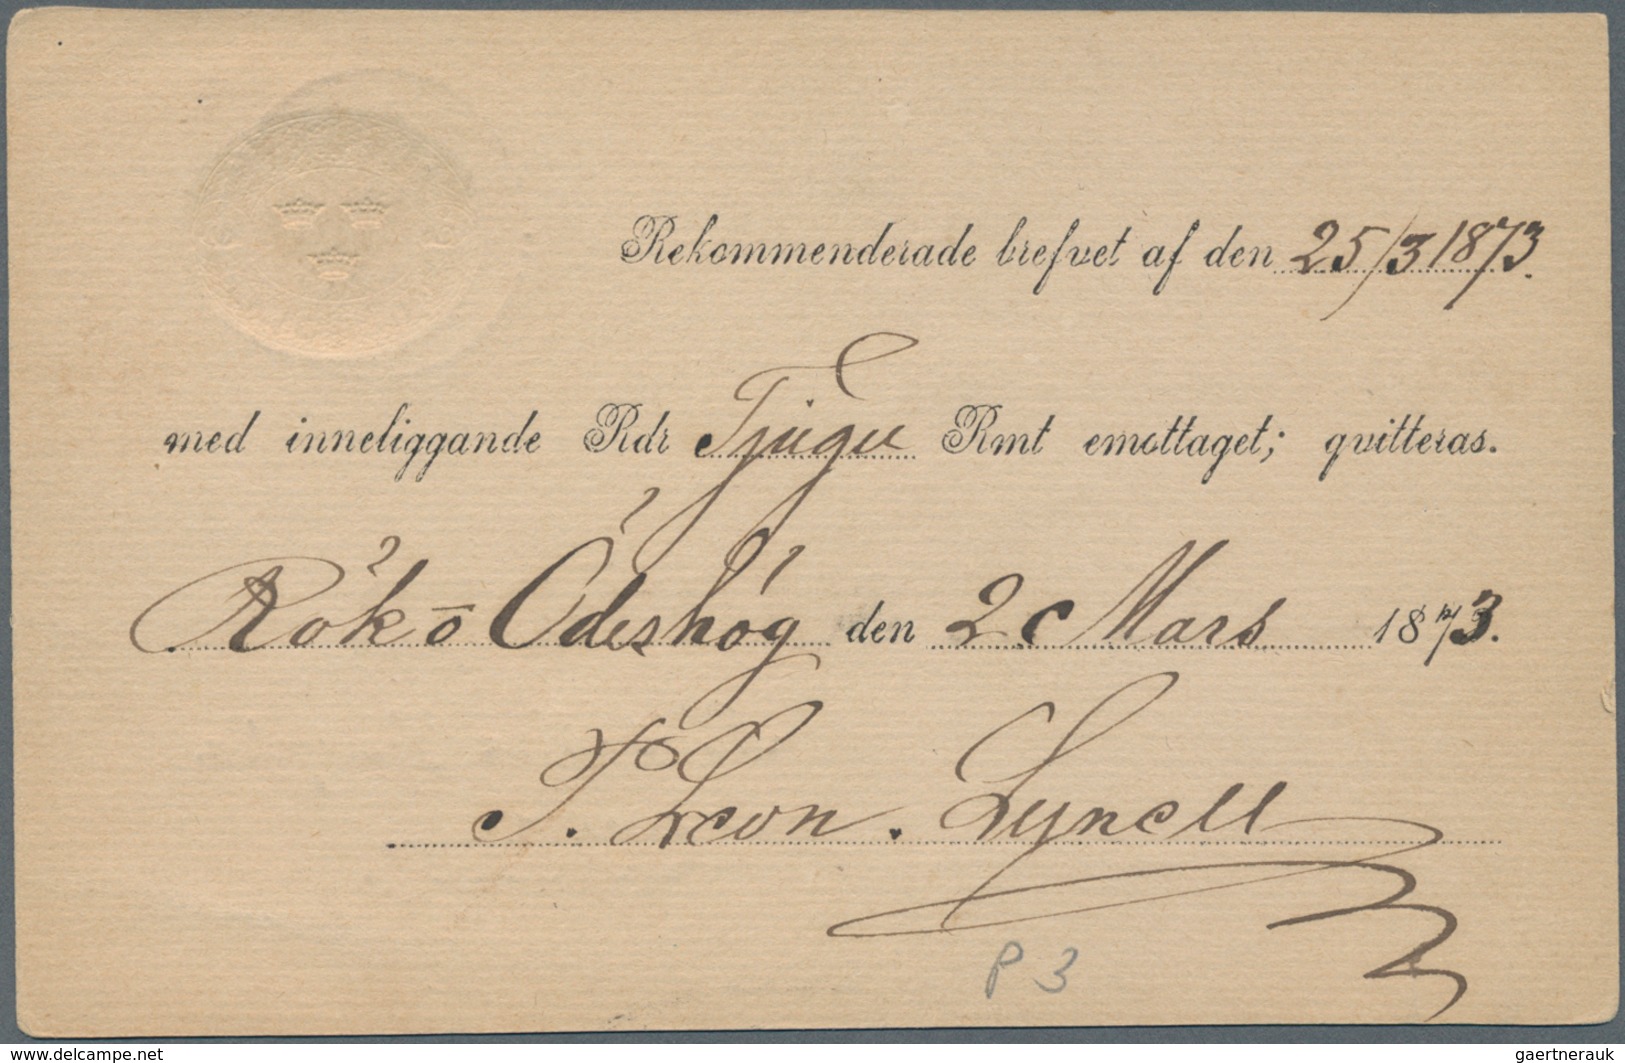 Rekommenderade brefvet af den 25/3 1873.
med inneliggande Rdr Tjugu Rmt emottaget; qvitteras.
Rök ō Ödeshög den 2 Mars 1873.
Leon. Lynell
P 3
www.delcampe.net
gaertnerauk